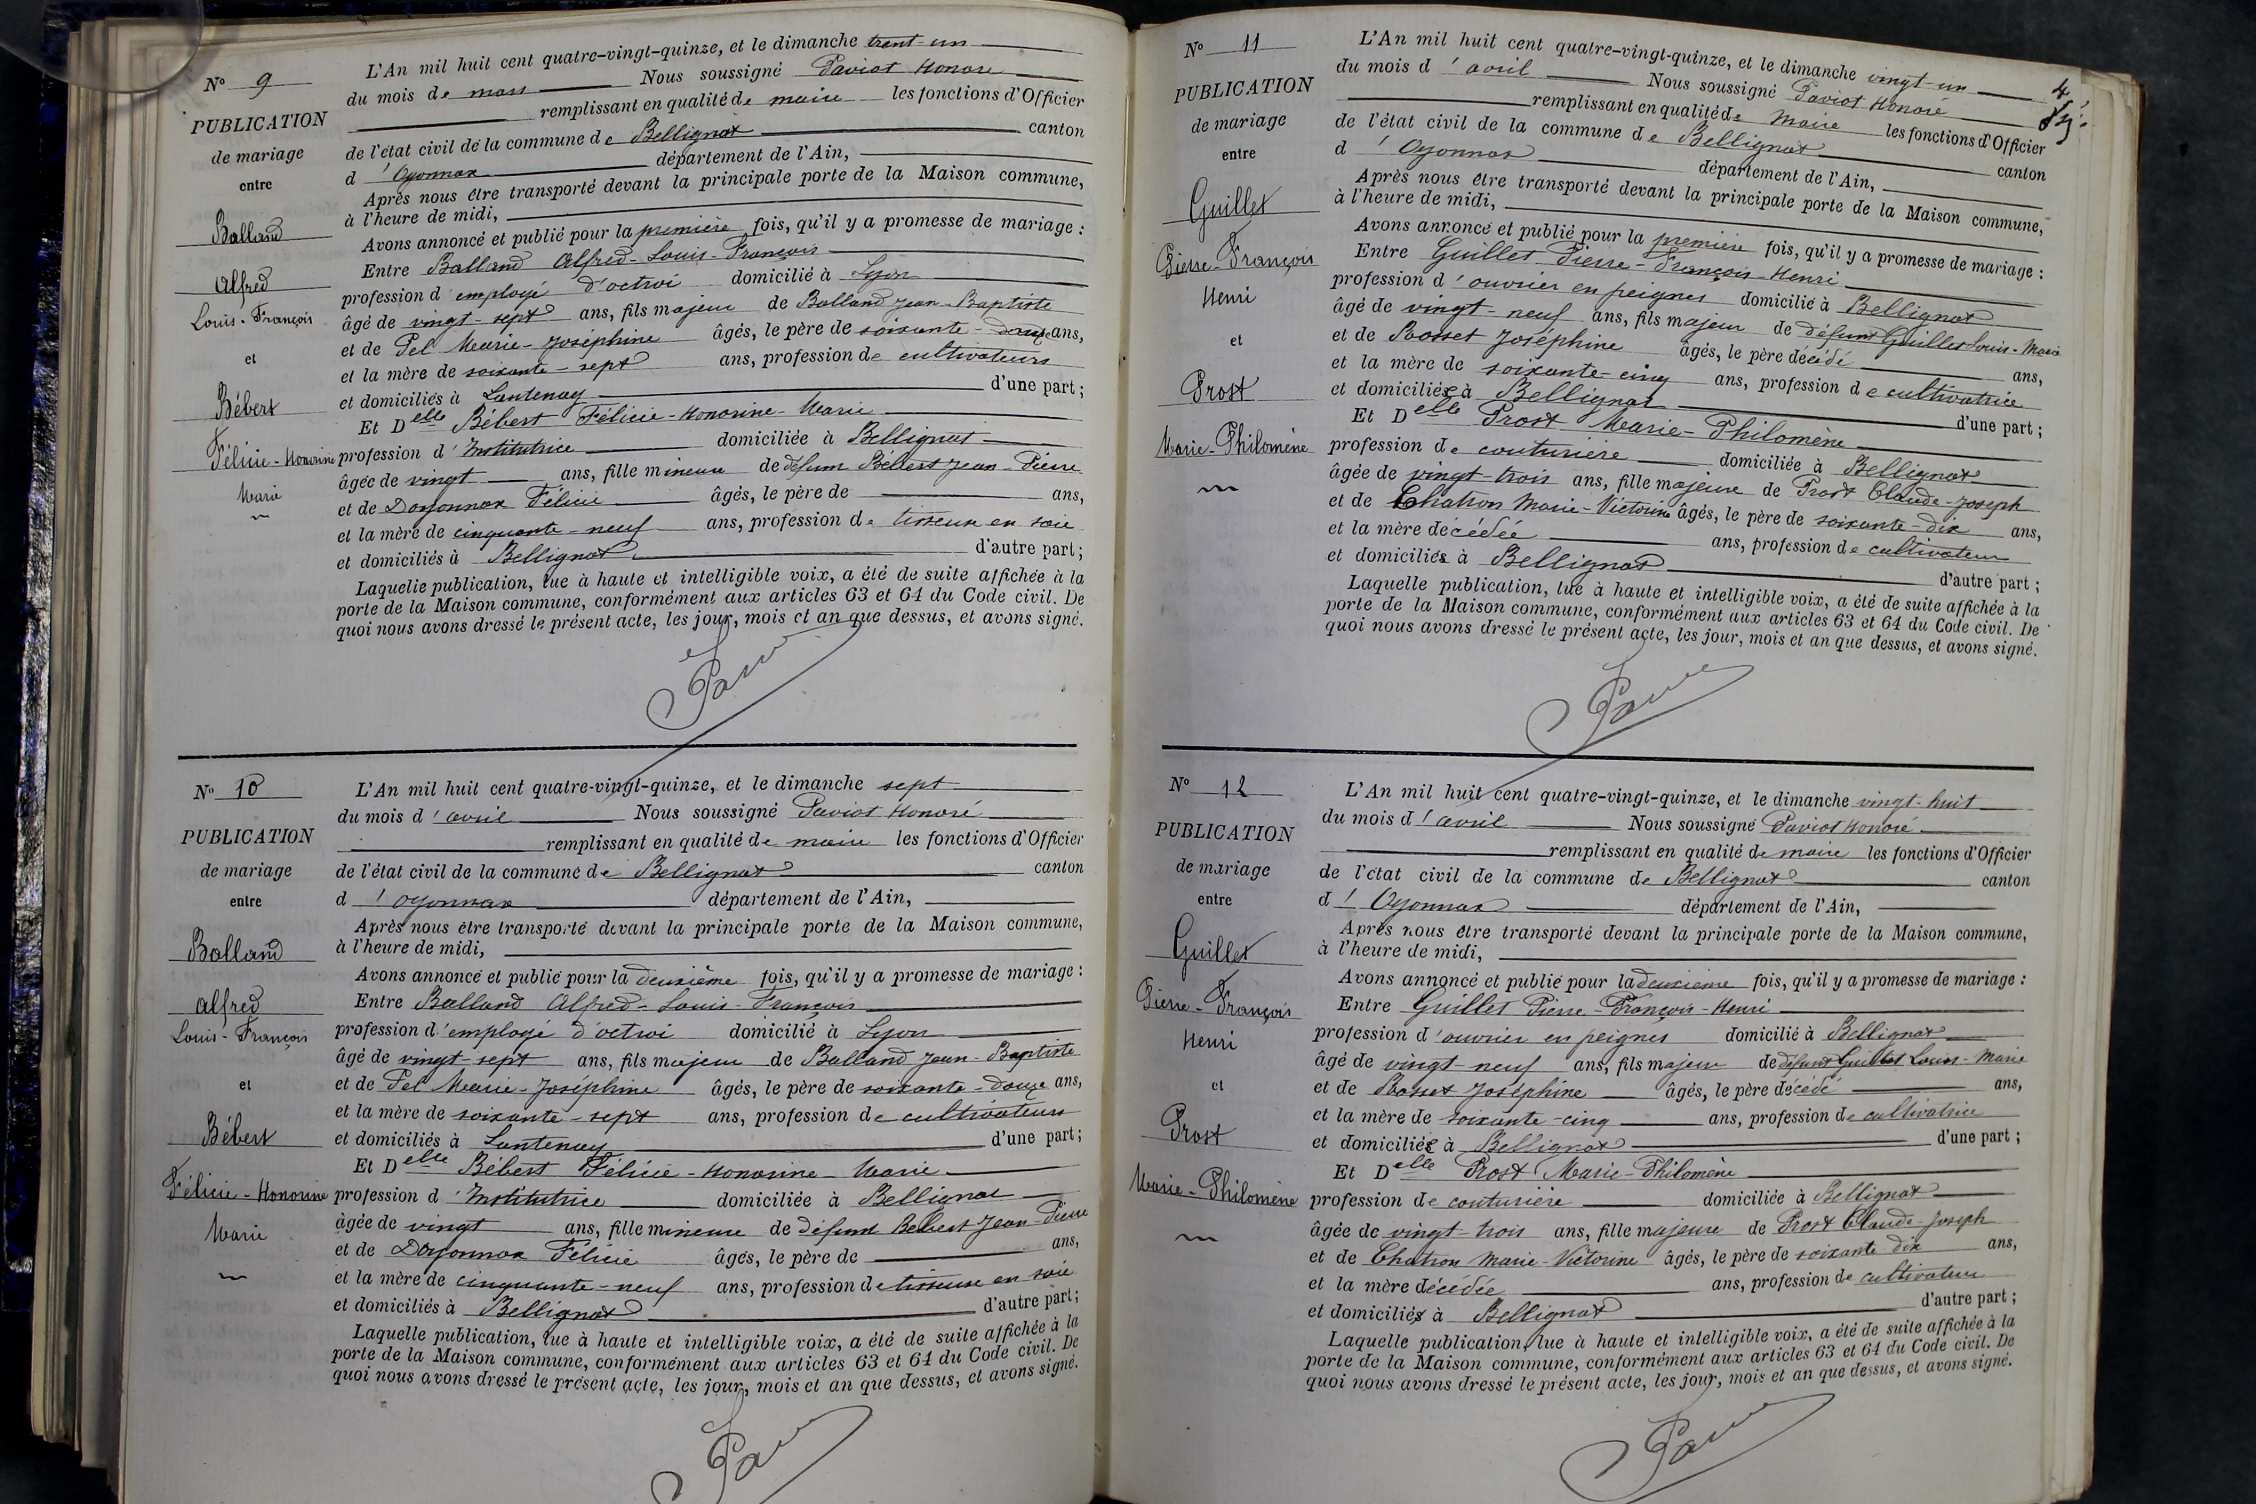 N° 9
PUBLICATION
de mariage
entre
Balland
Alfred
Louis-François
et
Bébert
Félicie-Honorine
Marie
L'An mil huit cent quatre-vingt-quinze, et le dimanche trent-un
du mois de mars Nous soussigné Paviot Honoré
remplissant en qualité de maire les fonctions d'Officier
de l'état civil de la commune de Bellignat canton
d'Oyonnax département de l'Ain,
Après nous être transporté devant la principale porte de la Maison commune,
à l'heure de midi,
Avons annoncé et publié pour la première fois, qu'il y a promesse de mariage :
Entre Balland Alfred-Louis-François
profession d'employé d'octroi domicilié à Lyon
âgé de vingt-sept ans, fils majeur de Balland Jean-Baptiste
et de Pel Marie-Joséphine âgés, le père de soixante-douze ans,
et la mère de soixante-sept ans, profession de cultivateurs
et domiciliés à Lantenay d'une part ;
Et Delle Bébert Félicie-Honorine-Marie
profession d'Institutrice domiciliée à Bellignat
âgée de vingt ans, fille mineure de défunt Bébert Jean-Pierre
et de Doyonnax Félicie âgés, le père de ans,
et la mère de cinquante-neuf ans, profession de tisseuse en soie
et domiciliés à Bellignat d'autre part ;
Laquelle publication, lue à haute et intelligible voix, a été de suite affichée à la
porte de la Maison commune, conformément aux articles 63 et 64 du Code civil. De
quoi nous avons dressé le présent acte, les jour, mois et an que dessus, et avons signé.
N° 10
PUBLICATION
de mariage
entre
Balland
Alfred
Louis-François
et
Bébert
Félicie-Honorine
Marie
L'An mil huit cent quatre-vingt-quinze, et le dimanche sept
du mois d'avril Nous soussigné Paviot Honoré
remplissant en qualité de maire les fonctions d'Officier
de l'état civil de la commune de Bellignat canton
d'Oyonnax département de l'Ain,
Après nous être transporté devant la principale porte de la Maison commune,
à l'heure de midi,
Avons annoncé et publié pour la deuxième fois, qu'il y a promesse de mariage :
Entre Balland Alfred-Louis-François
profession d'employé d'octroi domicilié à Lyon
âgé de vingt-sept ans, fils majeur de Balland Jean-Baptiste
et de Pel Marie-Joséphine âgés, le père de soixante-douze ans,
et la mère de soixante-sept ans, profession de cultivateurs
et domiciliés à Lantenay d'une part ;
Et Delle Bébert Félicie-Honorine-Marie
profession d'Institutrice domiciliée à Bellignat
âgée de vingt ans, fille mineure de défunt Bébert Jean-Pierre
et de Doyonnax Félicie âgés, le père de ans,
et la mère de cinquante-neuf ans, profession de tisseuse en soie
et domiciliés à Bellignat d'autre part ;
Laquelle publication, lue à haute et intelligible voix, a été de suite affichée à la
porte de la Maison commune, conformément aux articles 63 et 64 du Code civil. De
quoi nous avons dressé le présent acte, les jour, mois et an que dessus, et avons signé.
4
N° 11
PUBLICATION
de mariage
entre
Guillet
Pierre-François
Henri
et
Prost
Marie-Philomène
L'An mil huit cent quatre-vingt-quinze, et le dimanche vingt-un
du mois d'avril Nous soussigné Paviot Honoré
remplissant en qualité de Maire les fonctions d'Officier
de l'état civil de la commune de Bellignat canton
d'Oyonnax département de l'Ain,
Après nous être transporté devant la principale porte de la Maison commune,
à l'heure de midi,
Avons annoncé et publié pour la première fois, qu'il y a promesse de mariage :
Entre Guillet Pierre-François-Henri
profession d'ouvrier en peignes domicilié à Bellignat
âgé de vingt-neuf ans, fils majeur de défunt Guillet Louis-Marie
et de Bosset Joséphine âgés, le père décédé ans,
et la mère de soixante-cinq ans, profession de cultivatrice
et domiciliée à Bellignat d'une part ;
Et Delle Prost Marie-Philomène
profession de couturière domiciliée à Bellignat
âgée de vingt-trois ans, fille majeure de Prost Claude-Joseph
et de Chatron Marie-Victorine âgés, le père de soixante-dix ans,
et la mère décédée ans, profession de cultivateur
et domiciliés à Bellignat d'autre part ;
Laquelle publication, lue à haute et intelligible voix, a été de suite affichée à la
porte de la Maison commune, conformément aux articles 63 et 64 du Code civil. De
quoi nous avons dressé le présent acte, les jour, mois et an que dessus, et avons signé.
N° 12
PUBLICATION
de mariage
entre
Guillet
Pierre-François
Henri
et
Prost
Marie-Philomène
L'An mil huit cent quatre-vingt-quinze, et le dimanche vingt-huit
du mois d'avril Nous soussigné Paviot Honoré
remplissant en qualité de maire les fonctions d'Officier
de l'état civil de la commune de Bellignat canton
d'Oyonnax département de l'Ain,
Après nous être transporté devant la principale porte de la Maison commune,
à l'heure de midi,
Avons annoncé et publié pour la deuxième fois, qu'il y a promesse de mariage :
Entre Guillet Pierre-François-Henri
profession d'ouvrier en peignes domicilié à Bellignat
âgé de vingt-neuf ans, fils majeur de défunt Guillet Louis-Marie
et de Bosset Joséphine âgés, le père décédé ans,
et la mère de soixante-cinq ans, profession de cultivatrice
et domiciliée à Bellignat d'une part ;
Et Delle Prost Marie-Philomène
profession de couturière domiciliée à Bellignat
âgée de vingt-trois ans, fille majeure de Prost Claude-Joseph
et de Chatron Marie-Victorine âgés, le père de soixante dix ans,
et la mère décédée ans, profession de cultivateur
et domiciliés à Bellignat d'autre part ;
Laquelle publication, lue à haute et intelligible voix, a été de suite affichée à la
porte de la Maison commune, conformément aux articles 63 et 64 du Code civil. De
quoi nous avons dressé le présent acte, les jour, mois et an que dessus, et avons signé.